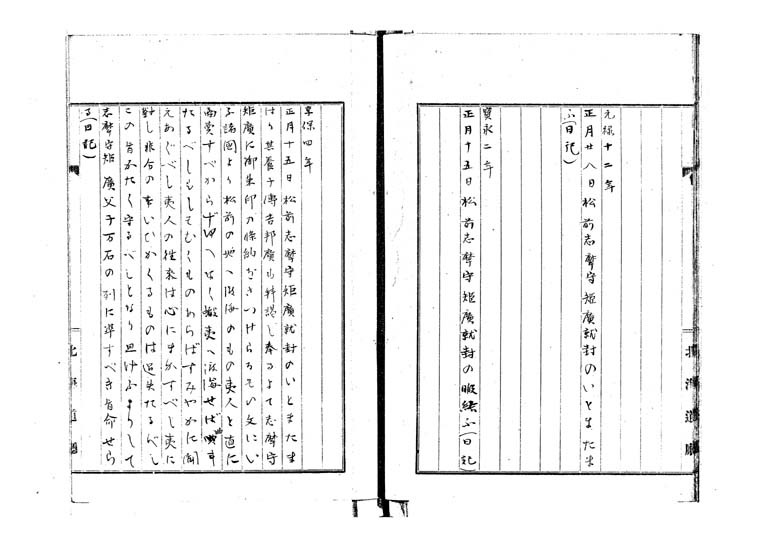 元禄十二年
正月廿八日松前志摩守矩廣就封のいとまたま
ふ(日記)
寳永二年
正月十五日松前志摩守矩廣就封の暇給ふ(日記)
北海道廳
享保四年
正月十五日松前志摩守矩廣就封のいとまたま
はり其養子傳吉邦廣も拝謁し奉るよて志摩守
矩廣に御朱印の條約おさづけらるその文にい
ふ諸國より松前の地へ渡海のもの夷人と直に
商賣すべからず ゆへなく蝦夷へ渡海せば
たるべしもしそむくものあらばすみやかに聞
えあぐべし夷人の往来は心にまかすべし夷に
對し非分の事いひかくるものは過失たるべし
この旨かたく守るべしとなり 志
志摩守矩廣父子万石の列に準ずべき旨命せら
る(日記)
北海道廳